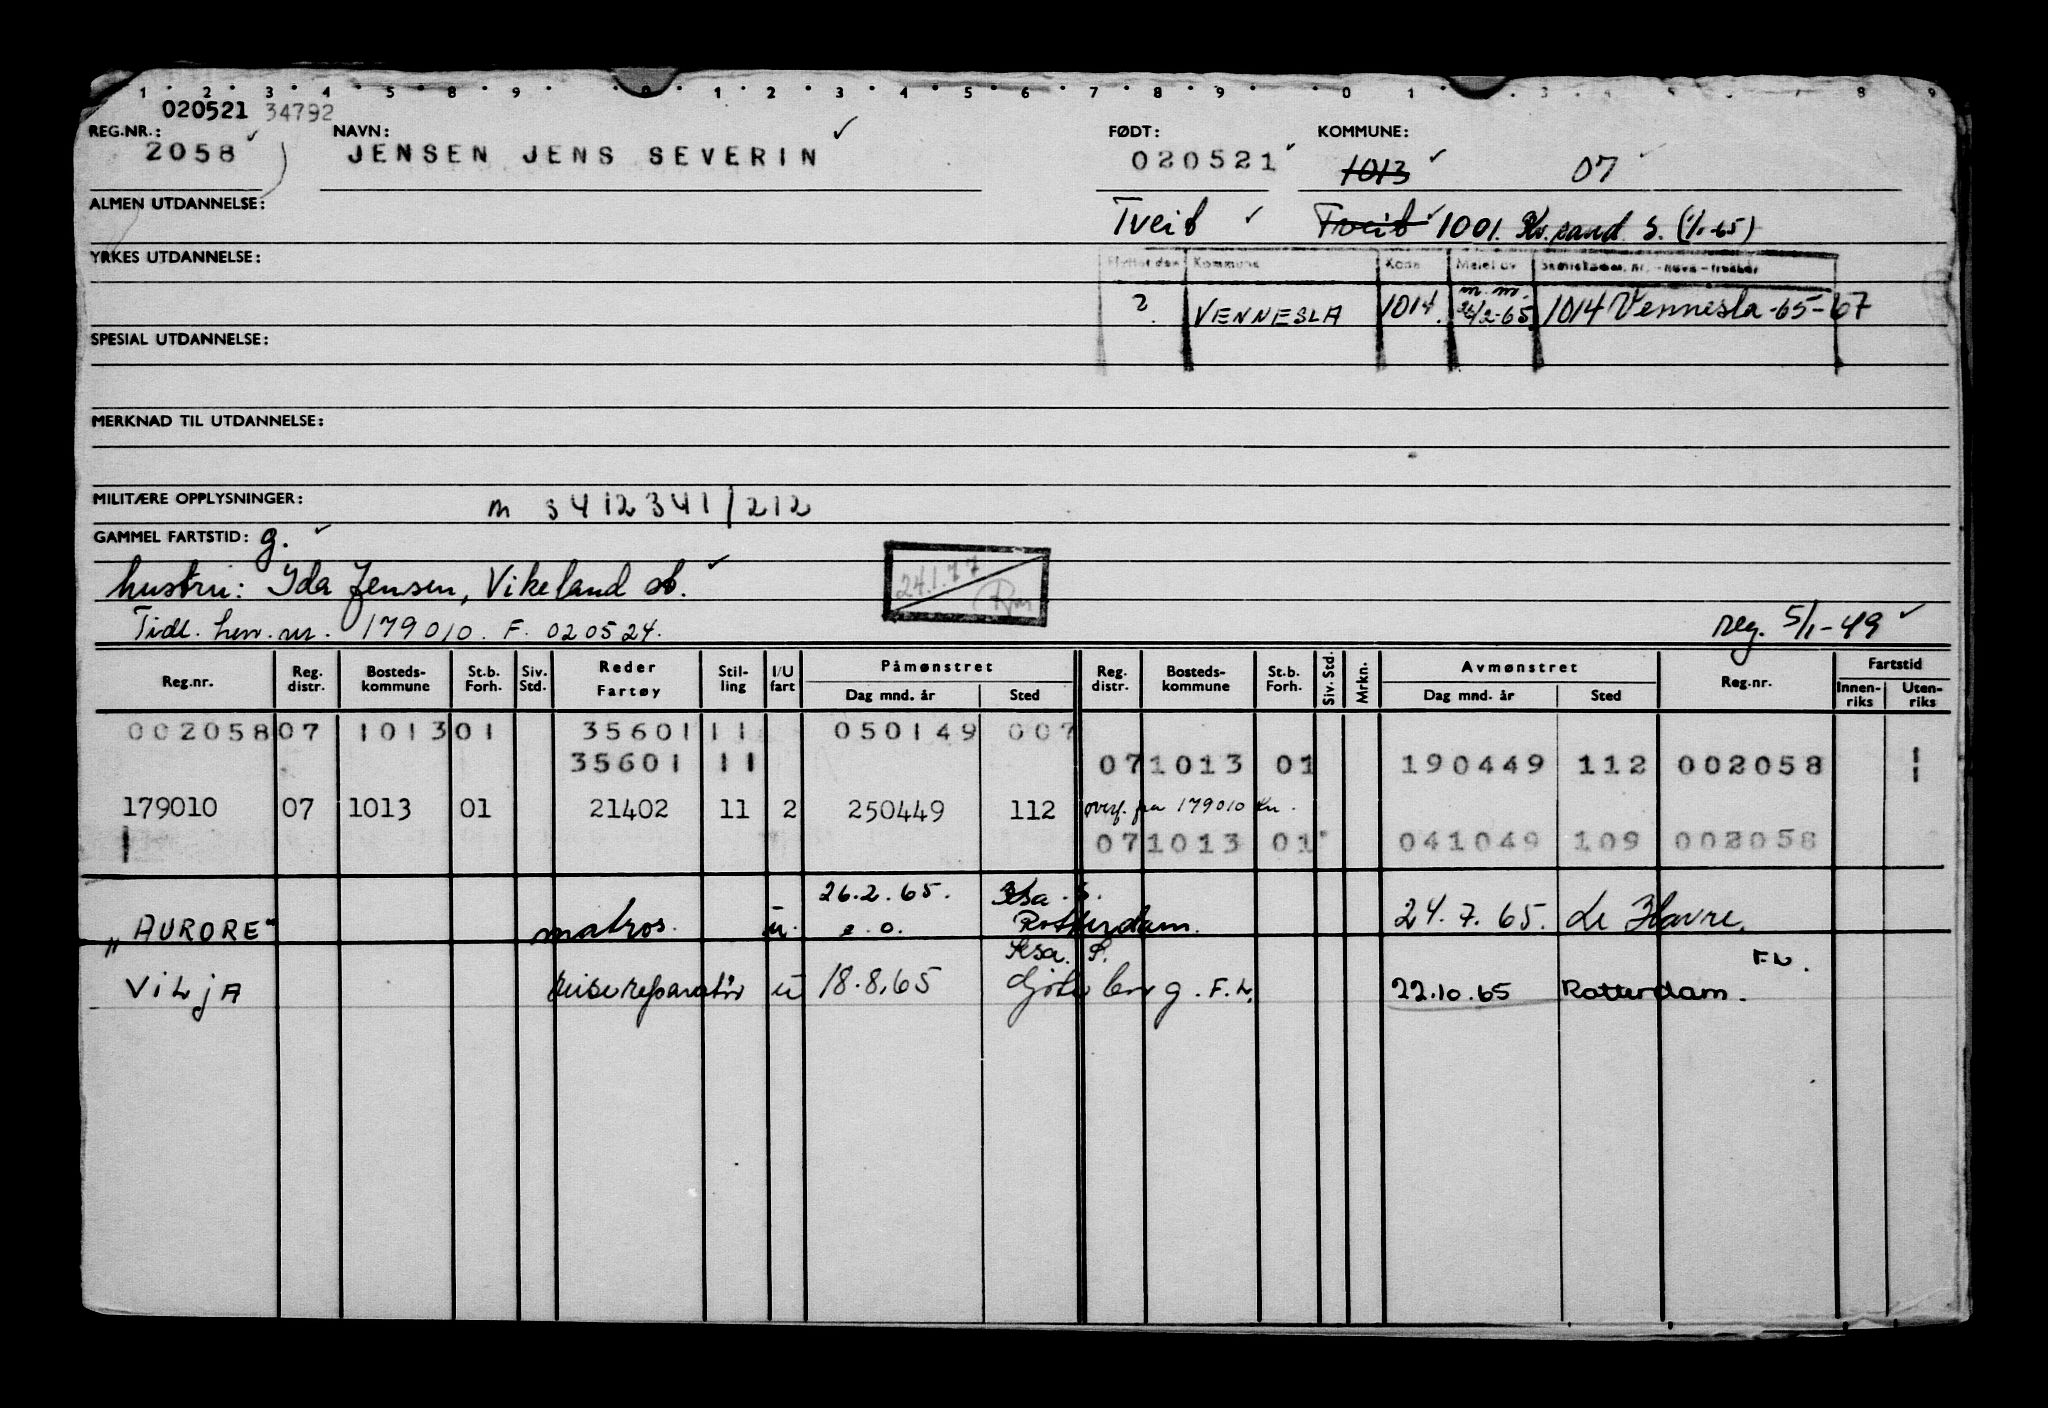 1 2 3 4 5 8 9 0 1 2 3 4 5 6 7 8 9 0 1 3 8 9
020521 34792
REG.NR.: NAVN: FØDT: KOMMUNE:
2058 JENSEN JENS SEVERIN 020521 1013 07
ALMEN UTDANNELSE: Tveit Tveit 1001. Kr.sand S. (1/1-65)
YRKES UTDANNELSE: Flyttet den Kommune Kode Meld av
2. VENNESLA 1014. m.m. 26/2-65 1014 Vennesla -65-67
SPESIAL UTDANNELSE:
MERKNAD TIL UTDANNELSE:
MILITÆRE OPPLYSNINGER: m 3412341/212
GAMMEL FARTSTID: g.
hustru: Ida Jensen, Vikeland st. 24.1.77
Tidl. hen. nr. 179010. F. 020524. reg. 5/1-49
Reg.nr. Reg. distr. Bosteds-kommune St.b. Forh. Siv. Std. Reder Fartøy Stil-ling I/U fart Påmønstret Dag mnd. år Sted Reg. distr. Bosteds-kommune St.b. Forh. Siv. Std. Mrkn. Avmønstret Dag mnd. år Sted Reg.nr. Fartstid Innen-riks Uten-riks
002058 07 1013 01 35601 11 050149 007
35601 11 07 1013 01 190449 112 002058
179010 07 1013 01 21402 11 2 250449 112 overf. fra 179010
07 1013 01 041049 109 002058
26.2.65. Ksa. S.
„AURORE" matros. u. e.o. Rotterdam. 24.7.65. Le Havre.
Ksa. S. F.L.
VILJA reisereparatør u 18.8.65 Gjøteborg. F.L. 22.10.65 Rotterdam.